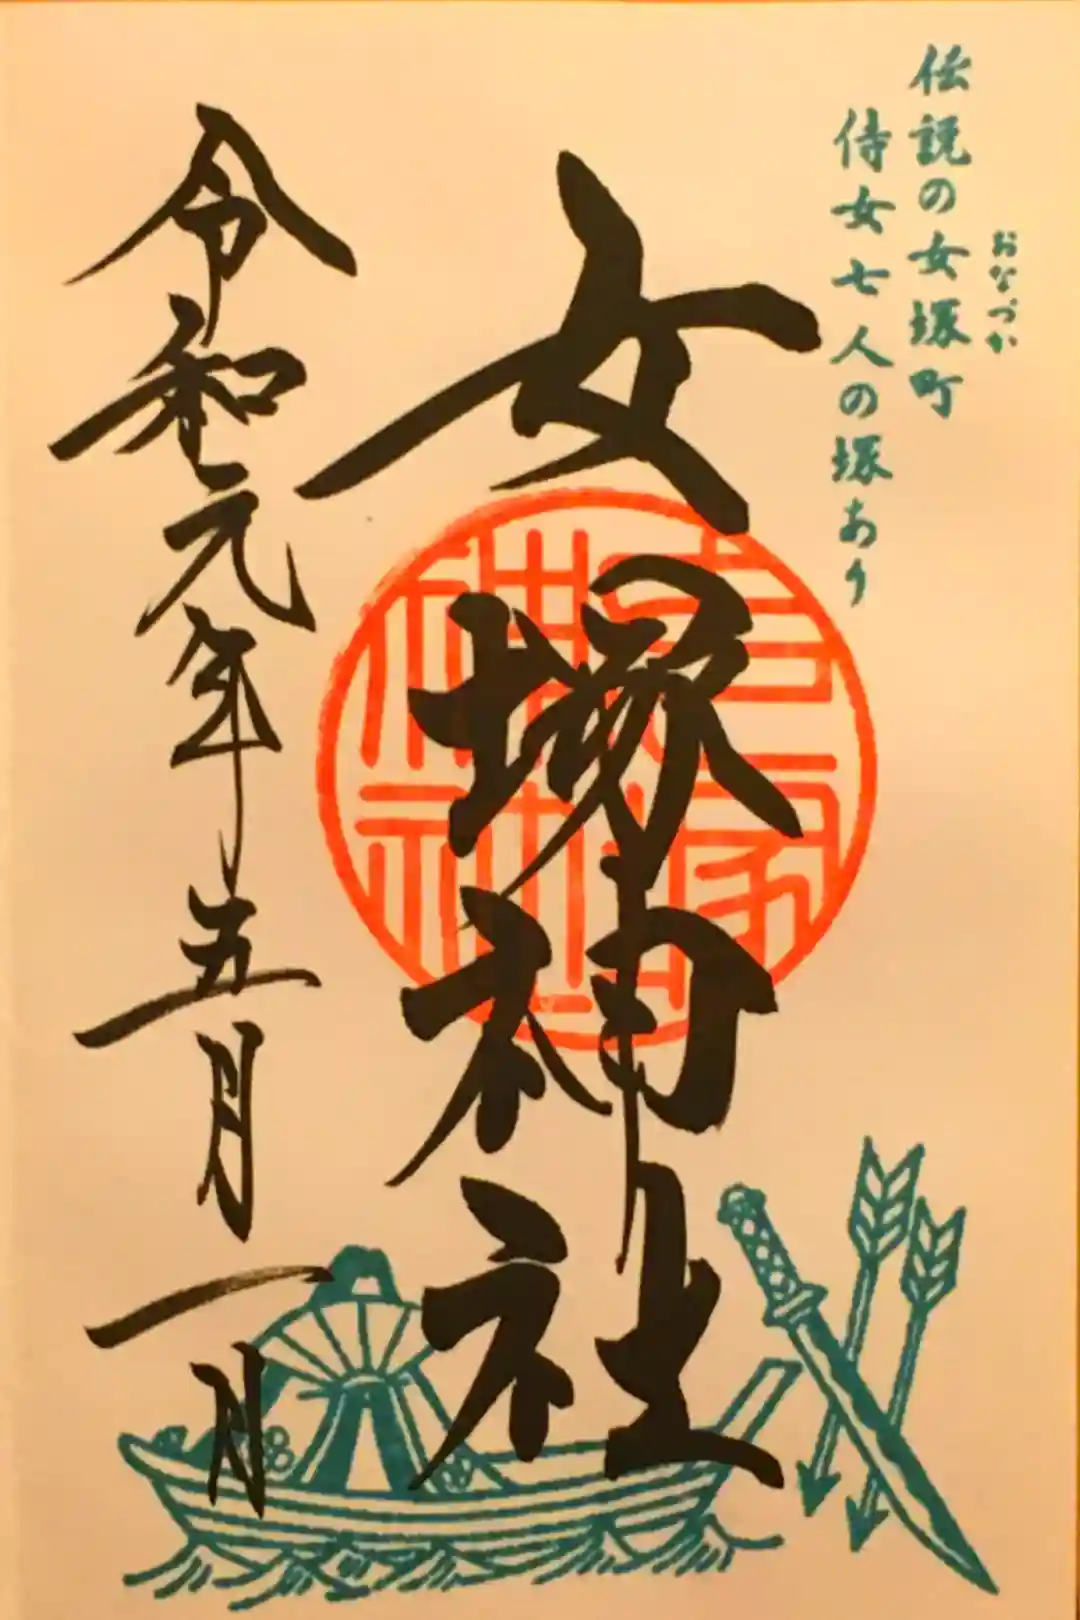 おなづか
伝説の女塚町
侍女七人の塚あり
女塚神社
令和元年五月一日